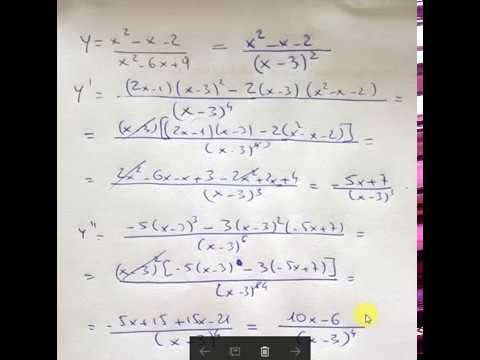 y = x²-x-2 / x²-6x+9 = x²-x-2 / (x-3)²
y' = (2x-1)(x-3)² - 2(x-3)(x²-x-2) / (x-3)⁴ =
= (x-3)[(2x-1)(x-3) - 2(x²-x-2)] / (x-3)⁴³ =
= 2x² - 6x - x + 3 - 2x² + 2x + 4 / (x-3)³ = -5x+7 / (x-3)³
y'' = -5(x-3)³ - 3(x-3)²(-5x+7) / (x-3)⁶ =
= (x-3)²[-5(x-3) - 3(-5x+7)] / (x-3)⁶⁴ =
= -5x+15+15x-21 / (x-3)⁴ = 10x-6 / (x-3)⁴